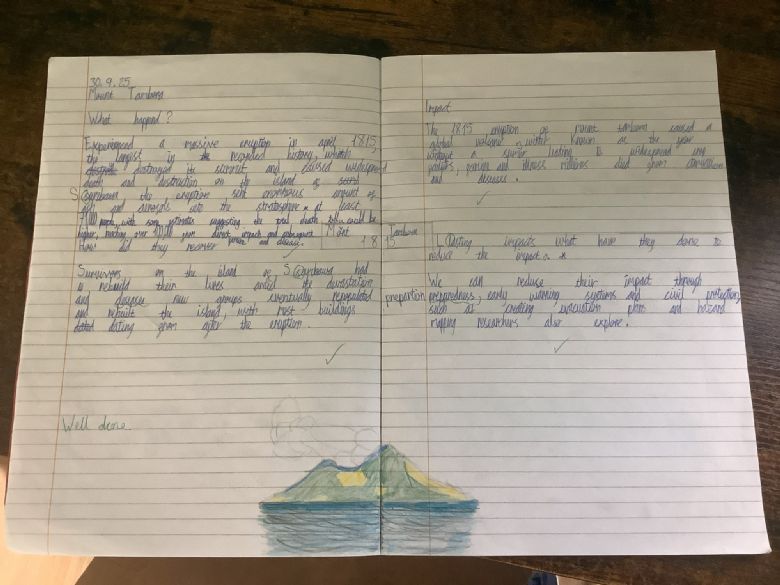 30.9.25
Mount Tambora
What happend?
Experienced a massive eruption in april 1815,
the largest in the recorded history, which
destroyed its summit and caused widespread
death and destruction on the island of
the eruption sent enormous amount of
ash and aerosols into the stratosphere at least
people, with some estimates suggesting the total death toll could be
higher, reaching over 100,000 from direct impach and subsequent
famine and disease.
How did they recover Mont Tambora 1815
Survivors on the island of had
to rebuild their lives amid the devastation
and disease new groups eventually repopulated
and rebuilt the island, with most buildings
dating from after the eruption.
Well done.
Impact
The 1815 eruption of mount tambora caused a
global volcanic winter known as the year
without a summer leading to widespread
famine and illness millions died from starvation
and diseases.
Lasting impacts what have they done to
reduce the impact
We can reduse their impact through
preparedness, early warning systems and civil protection,
such as creating evacuation plans and hazard
mapping researchers also explore.